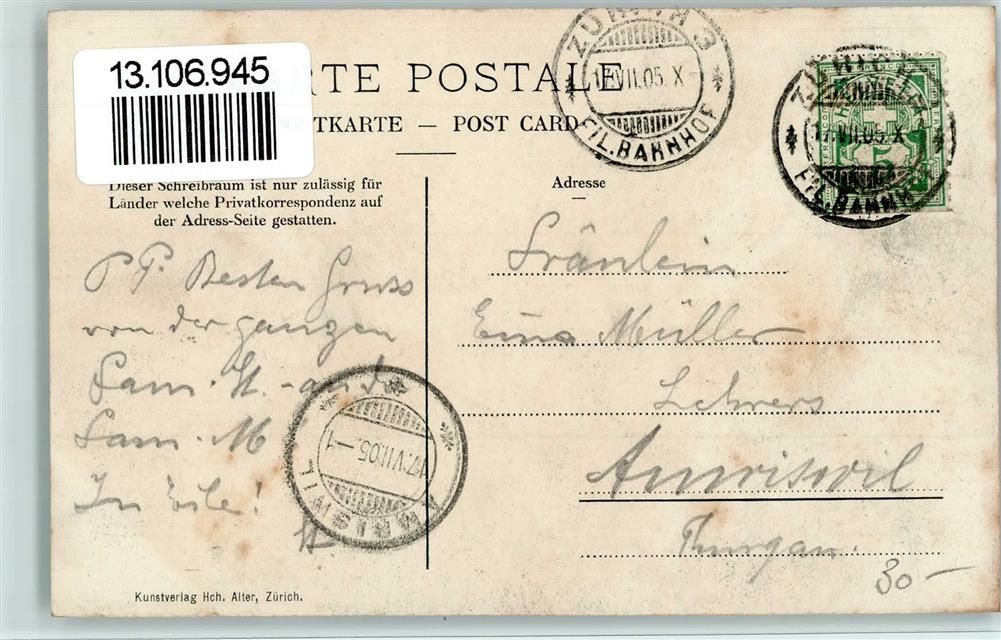 13.106.945
RTE POSTALE
TKARTE — POST CARD
ZÜRICH 3
17.VII.05.X-
FIL.BAHNHOF
17.VII.05.X
FIL.BAHNH
Dieser Schreibraum ist nur zulässig für
Länder welche Privatkorrespondenz auf
der Adress-Seite gestatten.
Adresse
P P. Besten Gruss
von der ganzen
Fam. H. - an d
Fam. M
In Eile!
H
Fräulein
Müller
Lehrers
Amriswil
Thurgau.
AMRISWIL
17.VII.05.-1
30-
Kunstverlag Hch. Alter, Zürich.